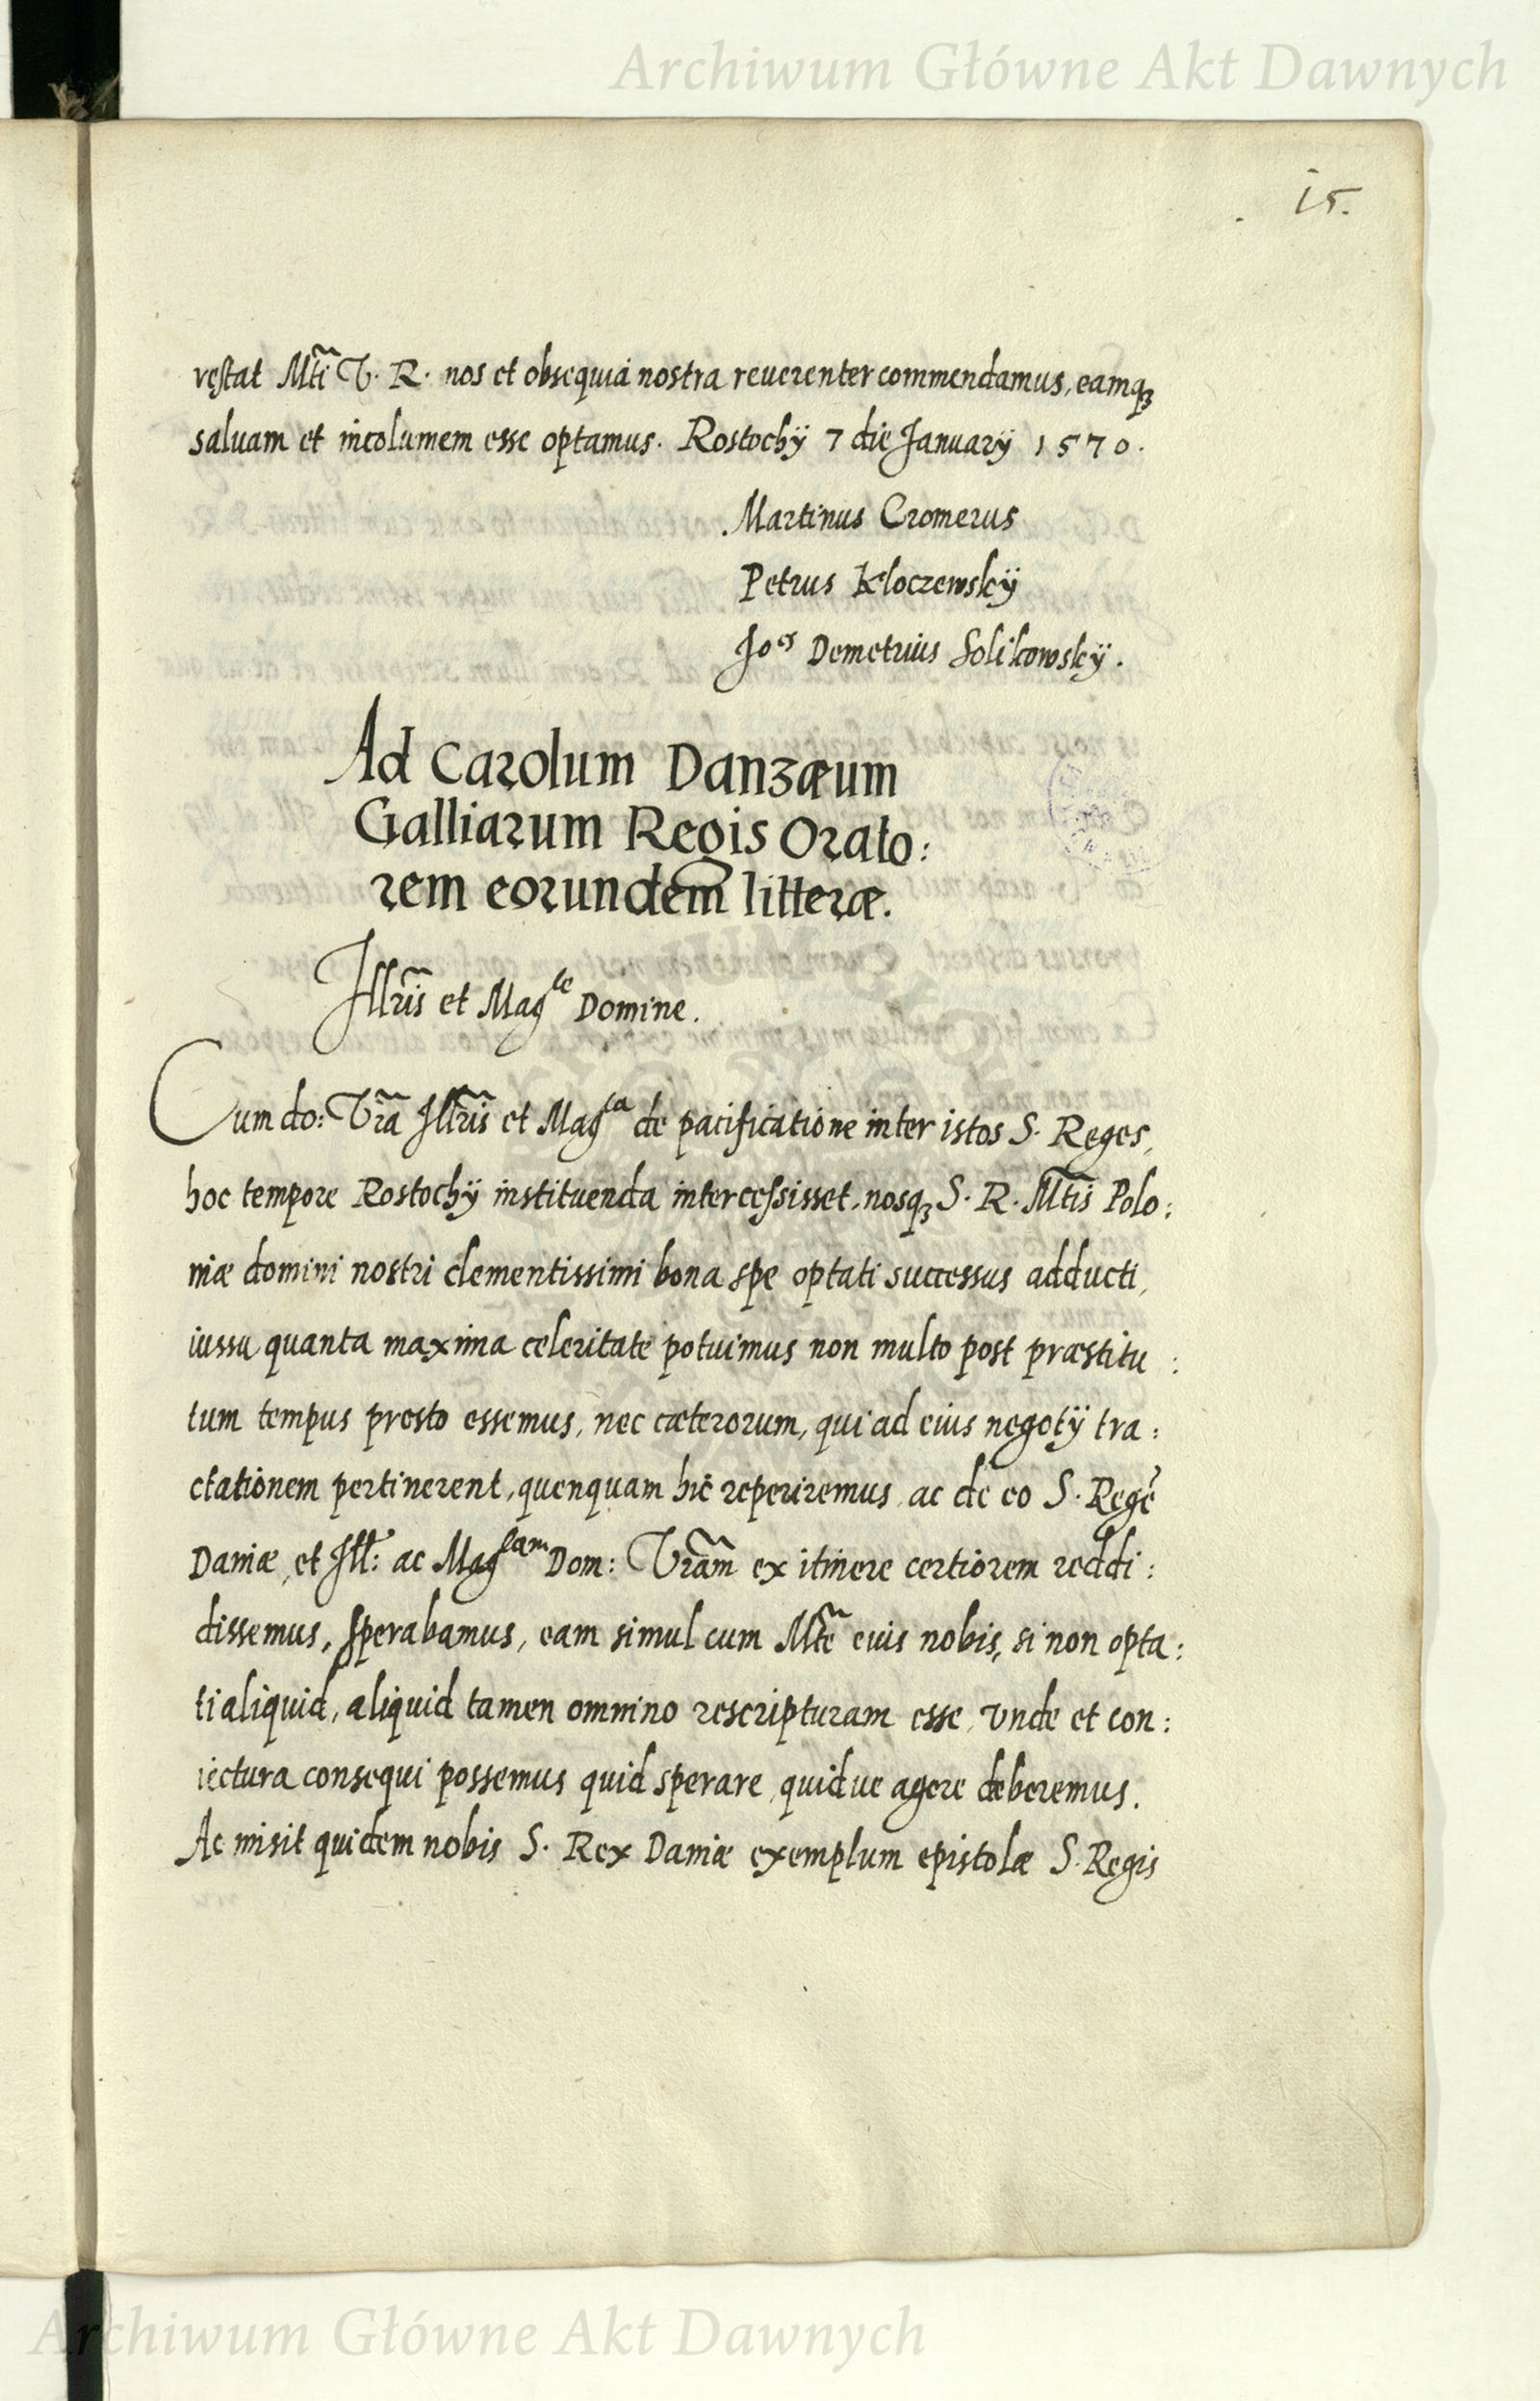 Archiwum Główne Akt Dawnych
15.
restat Mti V. R. nos et obsequia nostra reuerenter commendamus, eamq3
saluam et incolumem esse optamus. Rostochÿ 7 die Januarÿ 1570.
Martinus Cromerus
Petrus Kloczewskÿ
Joes Demetrius Solikowskÿ.
Ad Carolum Danzæum
Galliarum Regis Orato:
rem eorundem litteræ.
Jllris et Magce Domine.
Cum do: Vra Jllris et Magca de pacificatione inter istos S. Reges,
hoc tempore Rostochÿ instituenda intercessisset, nosq3 S. R. Mtis Polo:
niæ domini nostri clementissimi bona spe optati successus adducti,
iussu quanta maxima celeritate potuimus non multo post præstitu:
tum tempus presto essemus, nec cæterorum, qui ad eius negotÿ tra:
ctationem pertinerent, quenquam hic reperiremus, ac de eo S. Regē
Daniæ, et Jll: ac Magcam Dom: Vram ex itinere certiorem reddi:
dissemus, sperabamus, eam simul cum Mte eius nobis, si non opta:
ti aliquid, aliquid tamen omnino rescripturam esse, vnde et con:
iectura consequi possemus quid sperare, quidue agere deberemus.
Ac misit quidem nobis S. Rex Daniæ exemplum epistolæ S. Regis
Archiwum Główne Akt Dawnych